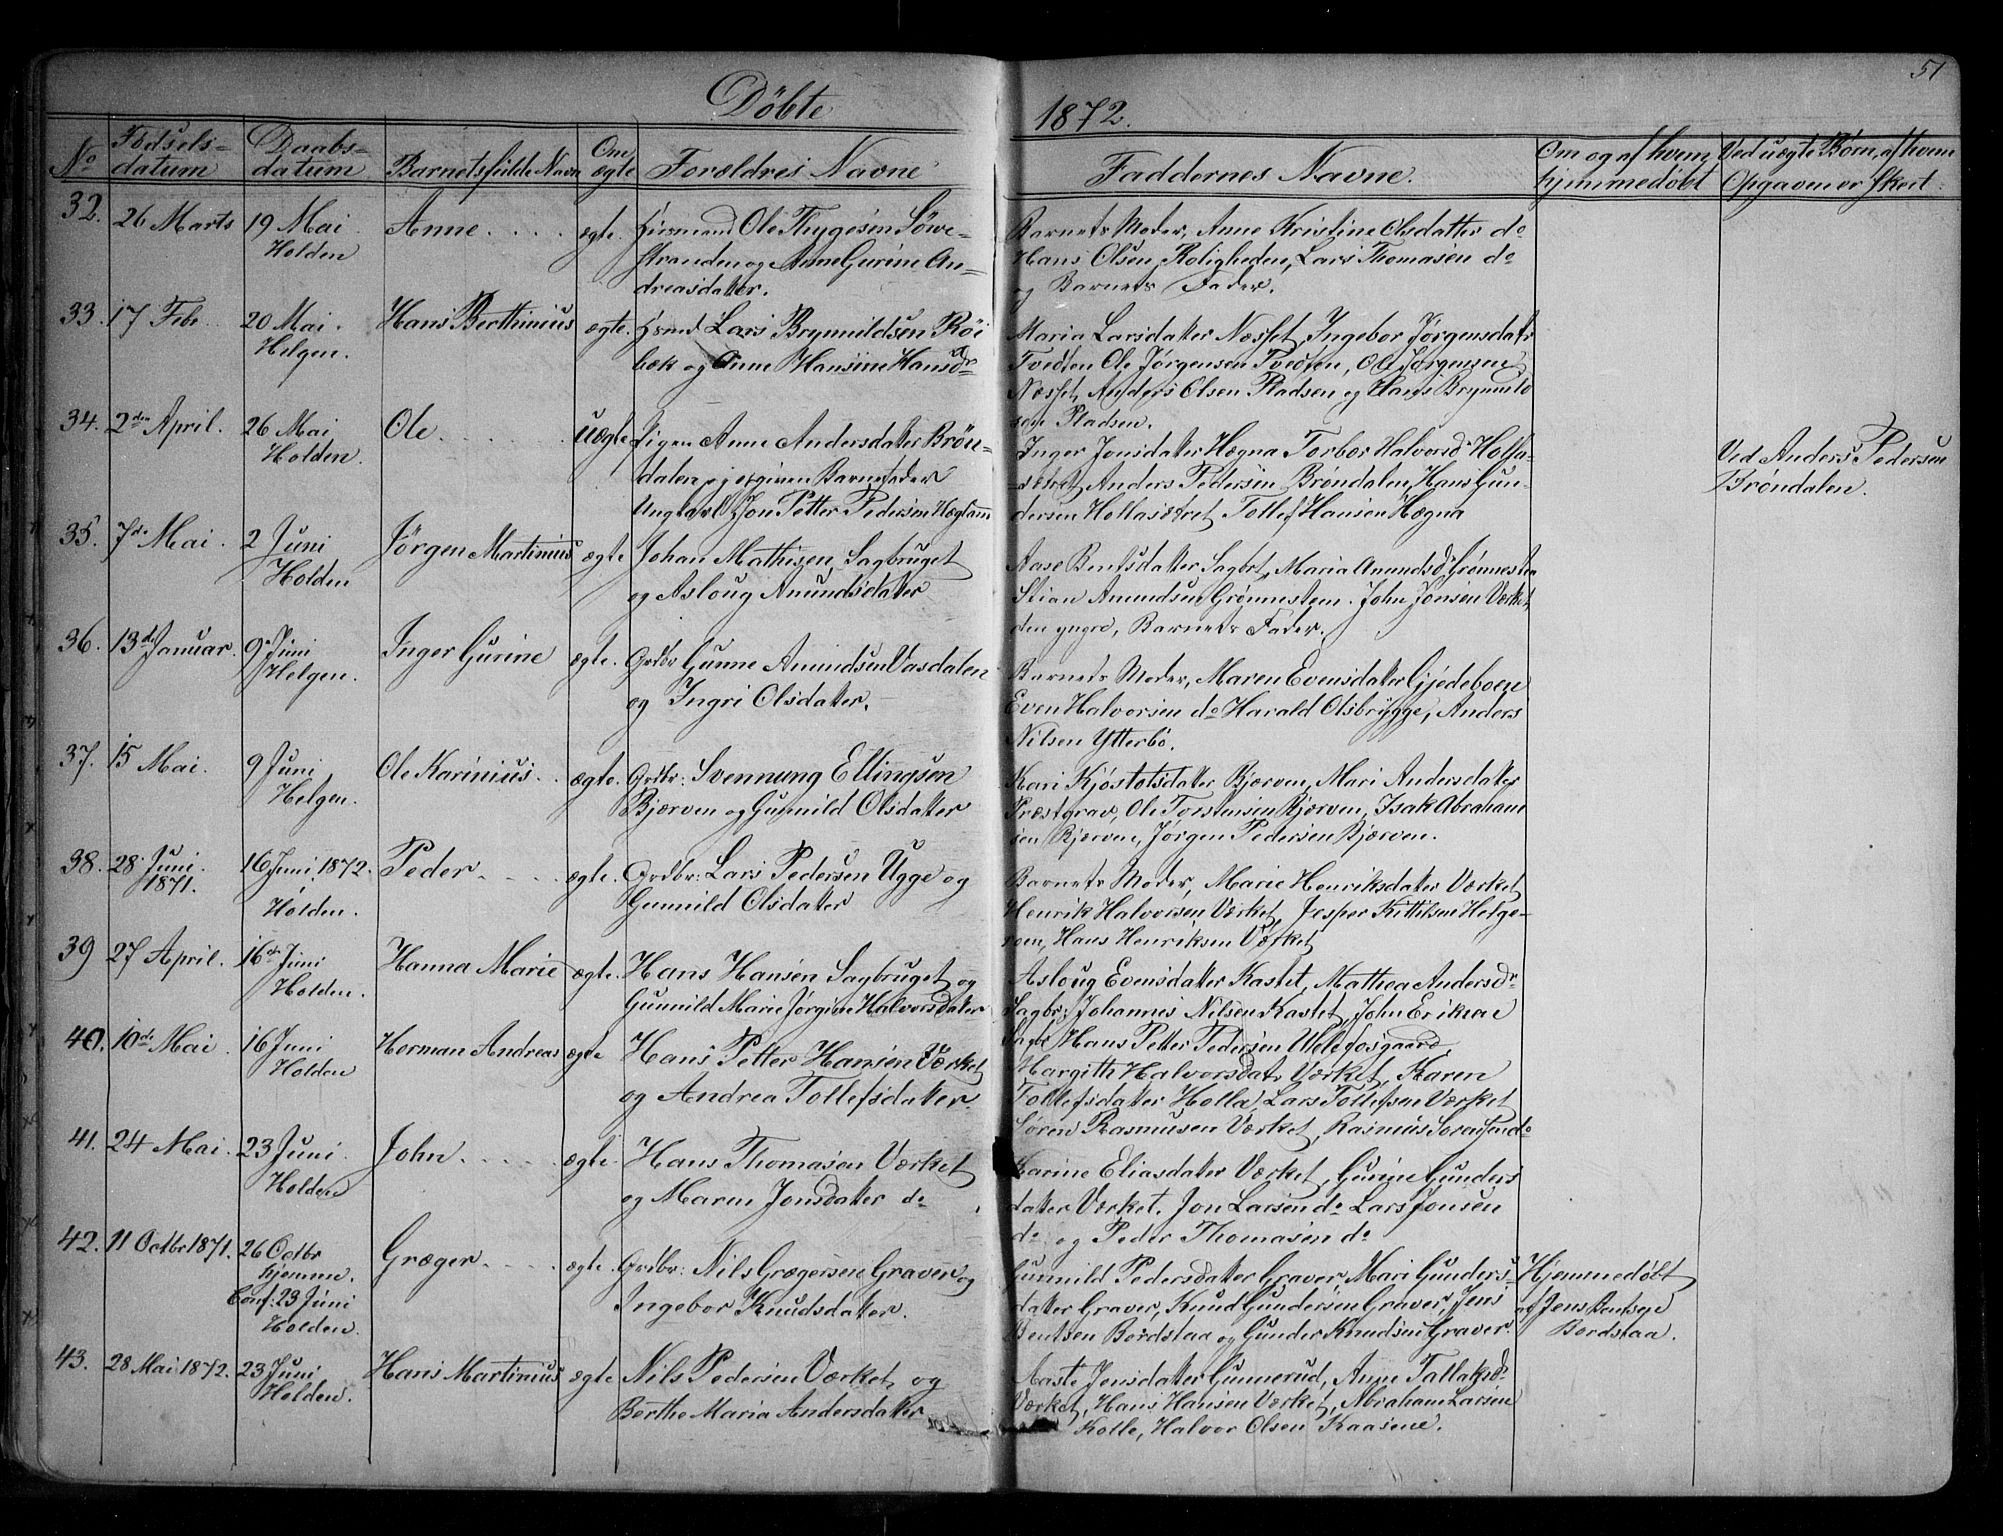 51
Döbte
1872.
No
Födsels-
datum
Daabs-
datum
Barnets fulde Navn
Om
ægte
Forældres Navne
Faddernes Navne.
Om og af hvem
hjemmedöbt
Ved uægte Børn, af hvem
Opgaven er skeet.
32. 26 Marts 19 Mai Anne ægte. Huusmand Ole Thygesen Löwe-
Holden
stranden og Anne Gurine An-
dreasdatter.
Barnets Moder, Anne Kristine Olsdatter do
Hans Olsen Roligheden, Lars Thomasen do
og Barnets Fader.
33. 17 Febr. 20 Mai. Hans Berthinius ægte. Lars Brynnildsen Röi
Helgen.
bæk og Anne Hansine Hansdr
Maria Larsdatter Næsset, Ingebor Jørgensdatr
Tvedten Ole Jørgensen Tvedten, Ole Jørgensen
Næsset, Anders Olsen Pladsen og Hans Brynnild
sen Pladsen.
34. 2den April. 26 Mai Ole uægte Pigen Anne Andersdatter Bröne-
Holden.
dalen, opgiven Barnefader
Ungkarl Jon Petter Pedersen
Inger Jonsdatter Hægna Torbor Halvorsd Holla-
sætret Anders Pedersen Bröndalen, Hans Gun-
dersen Hollasætret Tollef Hansen Hægna
Ved Anders Pedersen
Bröndalen.
35. 7de Mai. 2 Juni Jörgen Martinius ægte Johan Mathisen, Sagbruget
Holden
og Asloug Amundsdatter
Aase Bentsdatter Sagbrt, Maria Amundsd Grönnesten
Stian Amundsen Grönnestem. John Jonsen Værket
den yngre, Barnets Fader.
36. 13de Januar. 9 Juni Inger Gurine ægte. Grdbr Gunne Amundsen Vasdalen
Helgen.
og Ingri Olsdatter.
Barnets Moder, Maren Evensdatter Gjedeboen
Even Halvorsen do Harald Olsbrygge, Anders
Nilsen Ytterbö.
37. 15 Mai. 9 Juni Ole Karinius ægte. Grdbr: Svennung Ellingsen
Helgen.
Bjærven og Gunnild Olsdatter
Kari Kjöstolsdatter Bjærven, Mari Andersdatter
Præstgrav, Ole Torstensen Bjærven, Isak Abraham
sen Bjærven, Jörgen Pedersen Bjærven.
38. 28 Juni 16 Juni 1872. Peder ægte. Grdbr: Lars Pedersen Ugge og
1871.
Holden.
Gunnild Olsdatter
Barnets Moder, Marie Henriksdatter Værket
Henrik Halvorsen Værket, Jesper Kittilsen Helge-
roen, Hans Henriksen Værket
39 27 April. 16de Juni Hanna Marie ægte. Hans Hansen Sagbruget og
Holden.
Gunnild Marie Jörgine Halvorsdatter
Asloug Evensdatter Kastet, Mathea Andersdr
Sagbr, Johannis Nilsen Kastet, John Eriksen
Sagbr Hans Petter Pedersen Ulefosgaard.
40. 10de Mai 16 Juni Herman Andreas ægte Hans Petter Hansen Værket
Holden
og Andrea Tollefsdatter.
Margith Halvorsdatr Værket, Karen
Tollefsdatter Holla, Lars Tollefsen Værket
Sören Rasmusen Værket, Rasmus Sorensen do
41. 24 Mai. 23 Juni John ægte. Hans Thomasen Værket
Holden
og Maren Jonsdatter do
Karine Eliasdatter Værket, Gurine Gunders
datter Værket. Jon Larsen do Lars Jonsen
do og Peder Thomasen do
42. 11 Octbr 1871. 26 Octbr Græger ægte. Grdbr: Nils Grægersen Graver og
hjemme.
Conf: 23 Juni
Holden.
Ingebor Knudsdatter.
Gunnild Pedersdatter Graver, Mari Gunders-
datter Graver, Knud Gundersen Graver, Jens
Bentsen Bordstaa og Gunder Knudsen Graver.
Hjemmedöbt
af Jens Bentsen
Bordstaa.
43. 28 Mai 1872. 23 Juni Hans Martinius ægte Nils Pedersen Værket, og
Holden.
Berthe Maria Andersdatter
Aaste Jensdatter Gunnerud, Anne Tallaksdr
Værket, Hans Hansen Værket, Abraham Larsen
Kolle, Halvor Olsen Kaasene.